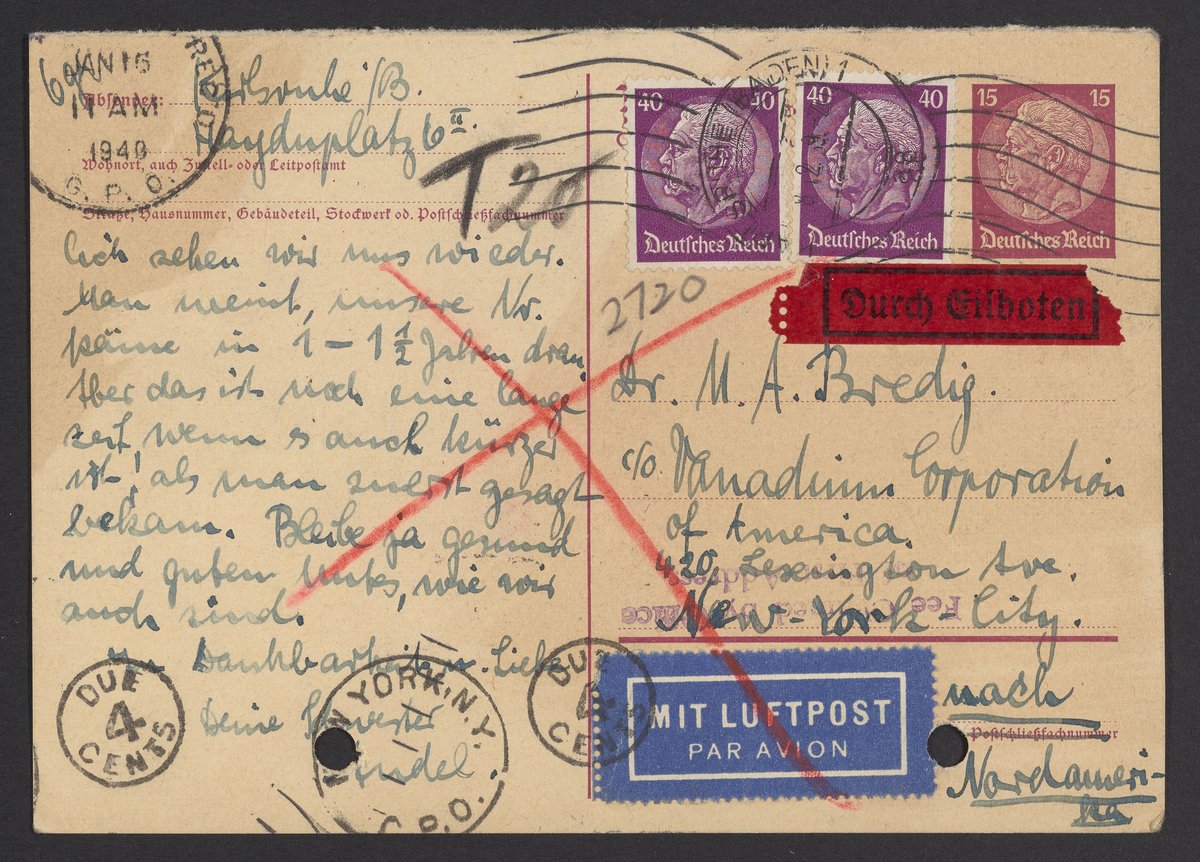 JAN 16
11 AM
1940
G. P. O.
Absender:
Karlsruhe /B.
Haydnplatz 6 II
Wohnort, auch Zustell- oder Leitpostamt
Straße, Hausnummer, Gebäudeteil, Stockwerk od. Postschließfachnummer
T 20
lich sehen wir uns wieder.
Man meint, unsere Nr.
käme in 1 – 1 1/2 Jahren dran
Aber das ist noch eine lange
Zeit, wenn s auch kürzer
ist, als man zuerst gesagt
bekam. Bleibe ja gesund
und guten Muts, wie wir
auch sind.
In Dankbarkeit u. Liebe
Deine Schwester
DUE
4
CENTS
NEW YORK, N.Y.
G.P.O.
DUE
4
CENTS
40 40
Deutsches Reich
40 40
Deutsches Reich
15 15
Deutsches Reich
(BADEN) 1
Durch Eilboten
2720
Dr. M. A. Bredig.
c/o. Vanadium Corporation
of America.
420, Lexington Ave.
New-York-City.
Fee claimed by office
MIT LUFTPOST
PAR AVION
nach
Postschließfachnummer
Nordameri-
ka